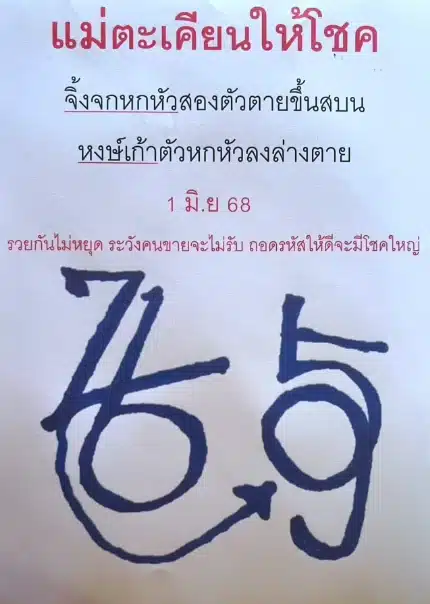 แม่ตะเคียนให้โชค
จิ้งจกหกหัวสองตัวตายขึ้นสบน
หงษ์เก้าตัวหกหัวลงล่างตาย
1 มิ.ย 68
รวยกันไม่หยุด ระวังคนขายจะไม่รับ ถอดรหัสให้ดีจะมีโชคใหญ่